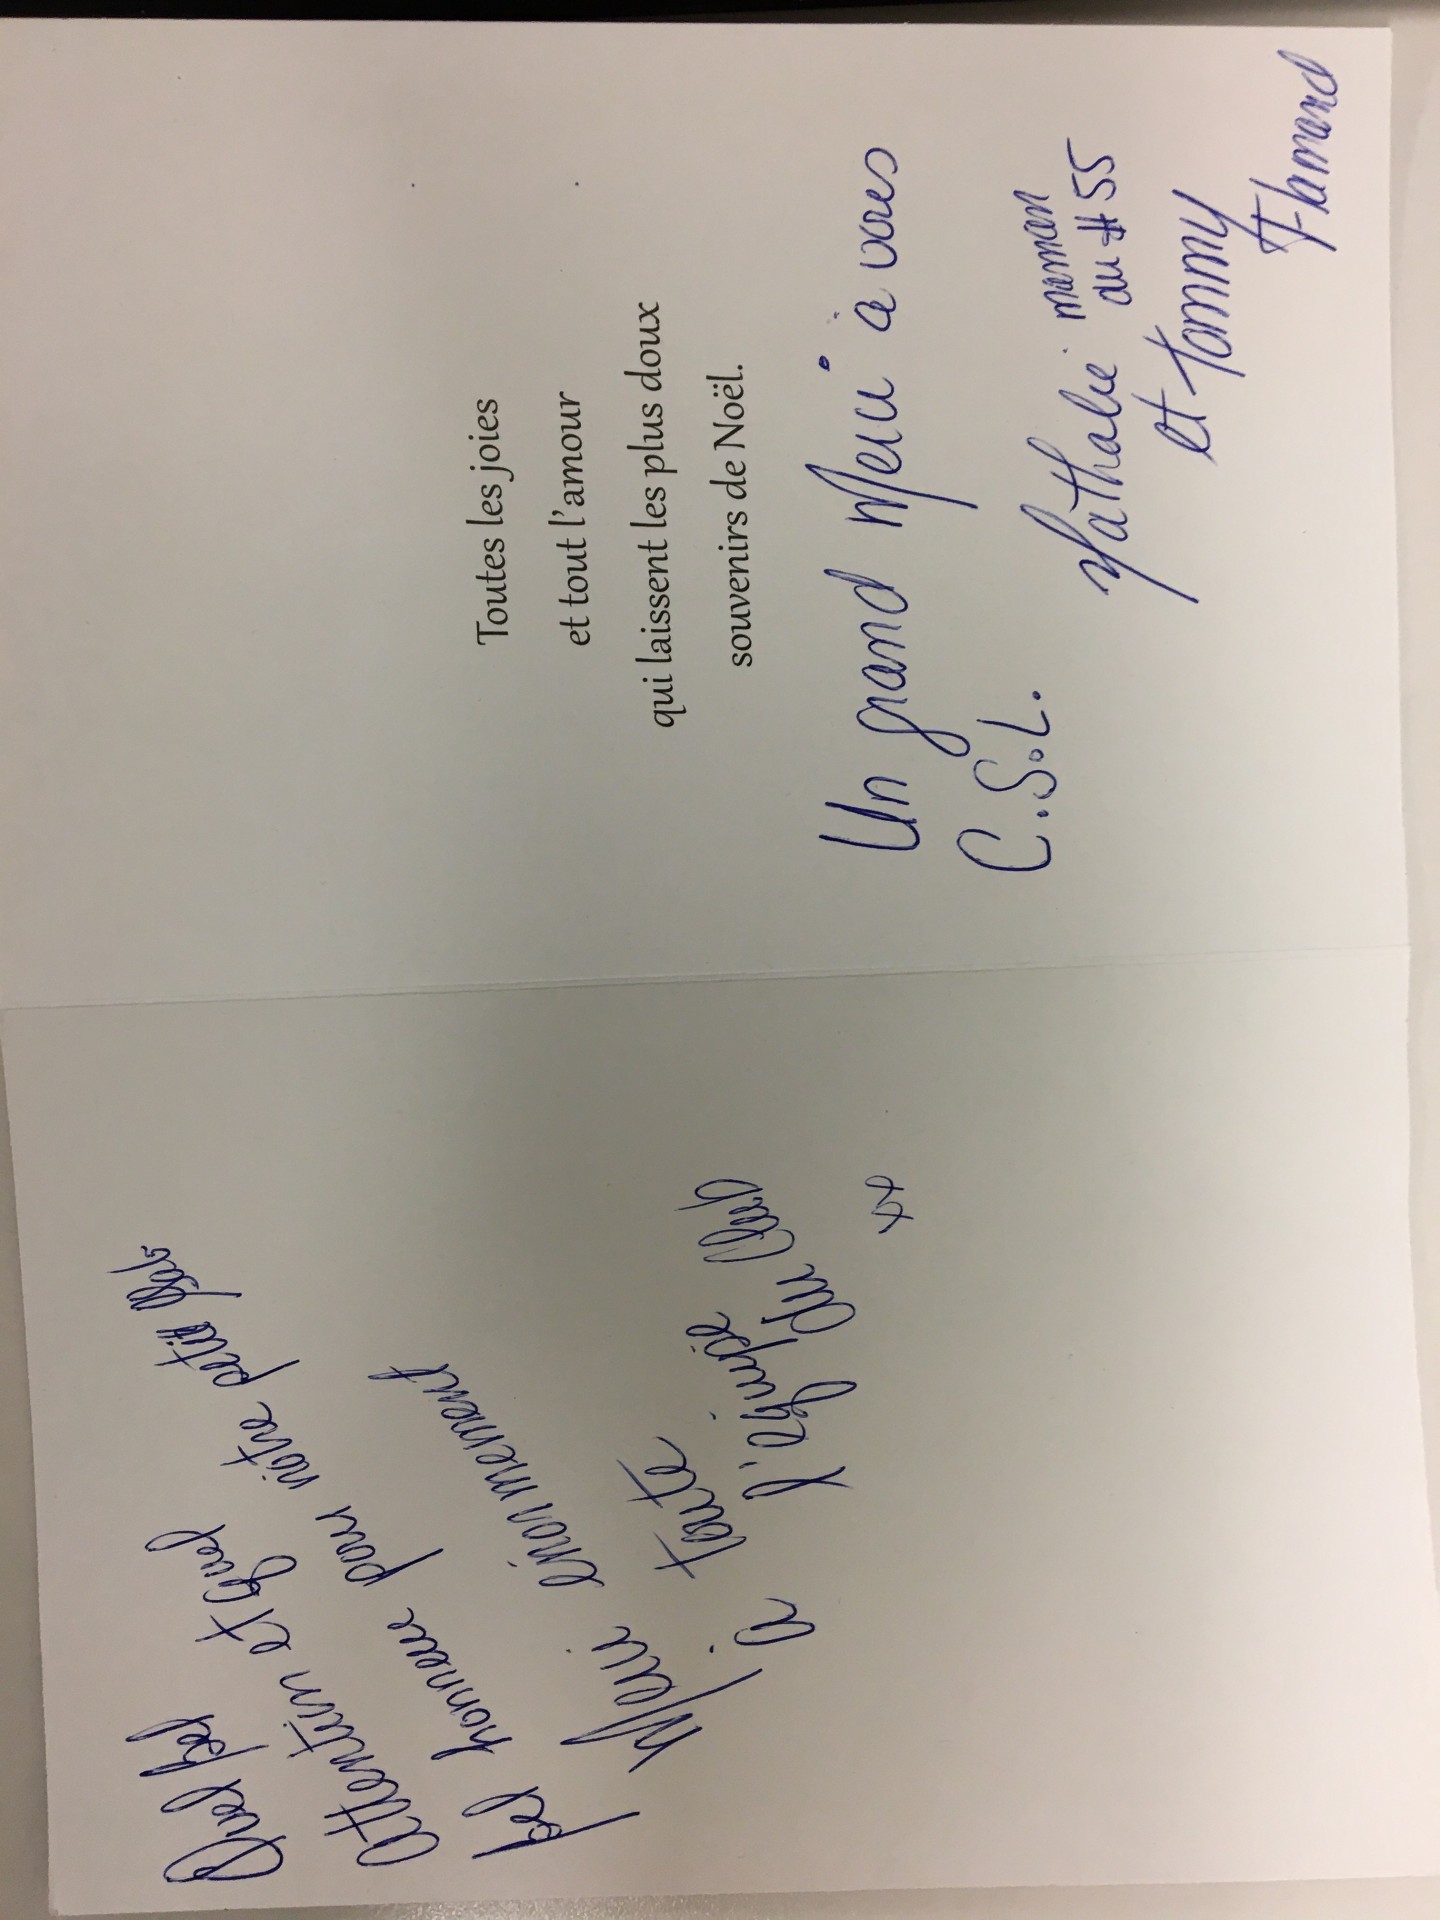 Quel bel
attention et quel
bel honneur pour nôtre petit
Merci énormément
à toute
l'équipe du Club
xx
Toutes les joies
et tout l'amour
qui laissent les plus doux
souvenirs de Noël.
Un grand Merci à vous
C.S.L.
Nathalie maman
du #55
et Tommy
Flamand